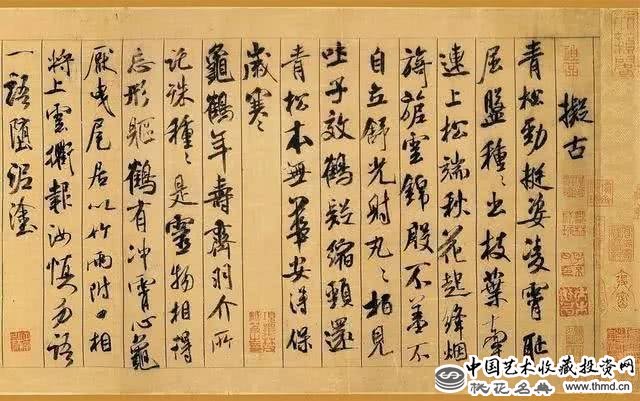 擬古
青松勁挺姿凌霄恥
屈盤種〻出枝葉牽
連上松端秋花起絳烟
旖旎雲錦殷不羞不
自立舒光射丸〻柏見
吐子效鶴疑縮頸還
青松本無華安得保
歲寒〻
龜鶴年壽齊羽介所
託殊種〻是靈物相得
忘形軀鶴有冲霄心龜
厭曳尾居以竹兩附口相
將上雲衢報汝慎勿語
一語墮泥塗
中国艺术收藏投资网
www.thmd.cn